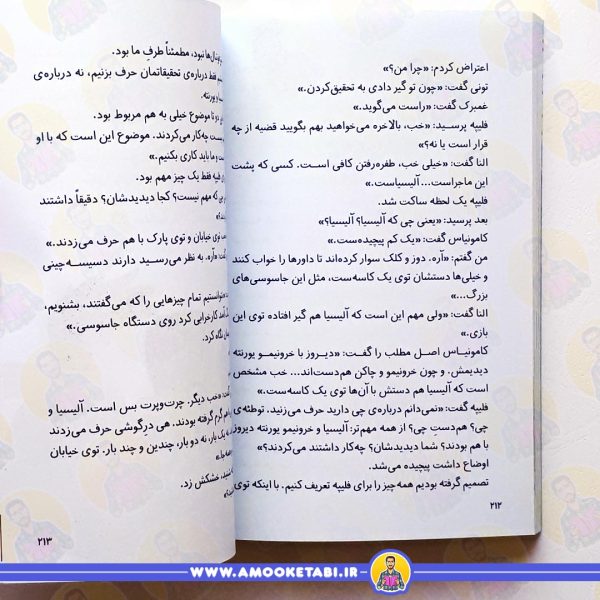 اعتراض کردم: «چرا من؟»
تونی گفت: «چون تو گیر دادی به تحقیق‌کردن.»
غمبرک گفت: «راست می‌گوید.»
فلیپه پرسید: «خب، بالاخره می‌خواهید بهم بگویید قضیه از چه
قرار است یا نه؟»
النا گفت: «خیلی خب، طفره‌رفتن کافی است. کسی که پشت
این ماجراست... آلیسیاست.»
فلیپه یک لحظه ساکت شد.
بعد پرسید: «یعنی چی که آلیسیا؟ آلیسیا؟»
کامونیاس گفت: «یک کم پیچیده‌ست.»
من گفتم: «آره. دوز و کلک سوار کرده‌اند تا داورها را خواب کنند
و خیلی‌ها دستشان توی یک کاسه‌ست، مثل این جاسوسی‌های
بزرگ...»
النا گفت: «ولی مهم این است که آلیسیا هم گیر افتاده توی این
بازی.»
کامونیاس اصل مطلب را گفت: «دیروز با خرونیمو پورنته
دیدیمش. و چون خرونیمو و چاکن هم‌دست‌اند... خب مشخص
است که آلیسیا هم دستش با آن‌ها توی یک کاسه‌ست.»
فلیپه گفت: «نمی‌دانم درباره‌ی چی دارید حرف می‌زنید. توطئه‌ی
چی؟ هم‌دست چی؟ از همه مهم‌تر: آلیسیا و خرونیمو پورنته دیروز
با هم بودند؟ شما دیدیدشان؟ چه‌کار داشتند می‌کردند؟»
اوضاع داشت پیچیده می‌شد.
تصمیم گرفته بودیم همه‌چیز را برای فلیپه تعریف کنیم. با اینکه توی
۲۱۲
نبود، مطمئناً طرفِ ما بود.
فقط درباره‌ی تحقیقاتمان حرف بزنیم، نه درباره‌ی
پورنته.
تا موضوع خیلی به هم مربوط بود.
چه‌کار می‌کردند. موضوع این است که با او
و ما باید کاری بکنیم.»
فقط یک چیز مهم بود.
که مهم نیست؟ کجا دیدیدشان؟ دقیقاً داشتند
توی خیابان و توی پارک با هم حرف می‌زدند.»
«آره. به نظر می‌رسید دارند دسیسه‌چینی
تمام چیزهایی را که می‌گفتند، بشنویم،
کارخرابی کرد روی دستگاه جاسوسی.»
نگاه کرد.
«خب دیگر. چرت‌وپرت بس است. آلیسیا و
گرم گرفته بودند. هی درِگوشی حرف می‌زدند
نه یک بار، نه دو بار، چندین و چند بار. توی خیابان
خشکش زد.
۲۱۳
WWW.AMOOKETABI.IR